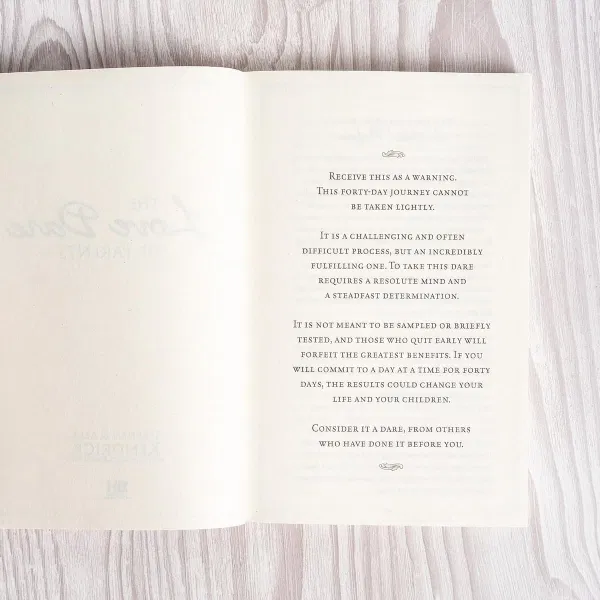 Love Dare
KENDRICK
RECEIVE THIS AS A WARNING.
THIS FORTY-DAY JOURNEY CANNOT
BE TAKEN LIGHTLY.
IT IS A CHALLENGING AND OFTEN
DIFFICULT PROCESS, BUT AN INCREDIBLY
FULFILLING ONE. TO TAKE THIS DARE
REQUIRES A RESOLUTE MIND AND
A STEADFAST DETERMINATION.
IT IS NOT MEANT TO BE SAMPLED OR BRIEFLY
TESTED, AND THOSE WHO QUIT EARLY WILL
FORFEIT THE GREATEST BENEFITS. IF YOU
WILL COMMIT TO A DAY AT A TIME FOR FORTY
DAYS, THE RESULTS COULD CHANGE YOUR
LIFE AND YOUR CHILDREN.
CONSIDER IT A DARE, FROM OTHERS
WHO HAVE DONE IT BEFORE YOU.